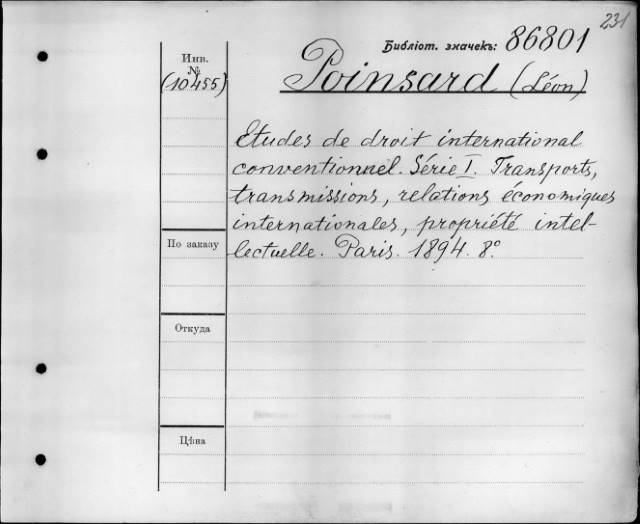 231
Библіот. значекъ: 86801
Инв.
№
(10455)
Poinsard (Léon)
Etudes de droit international
conventionnel. Série I. Transports,
transmissions, relations économiques
internationales, propriété intel-
lectuelle. Paris. 1894. 8°.
По заказу
Откуда
Цѣна